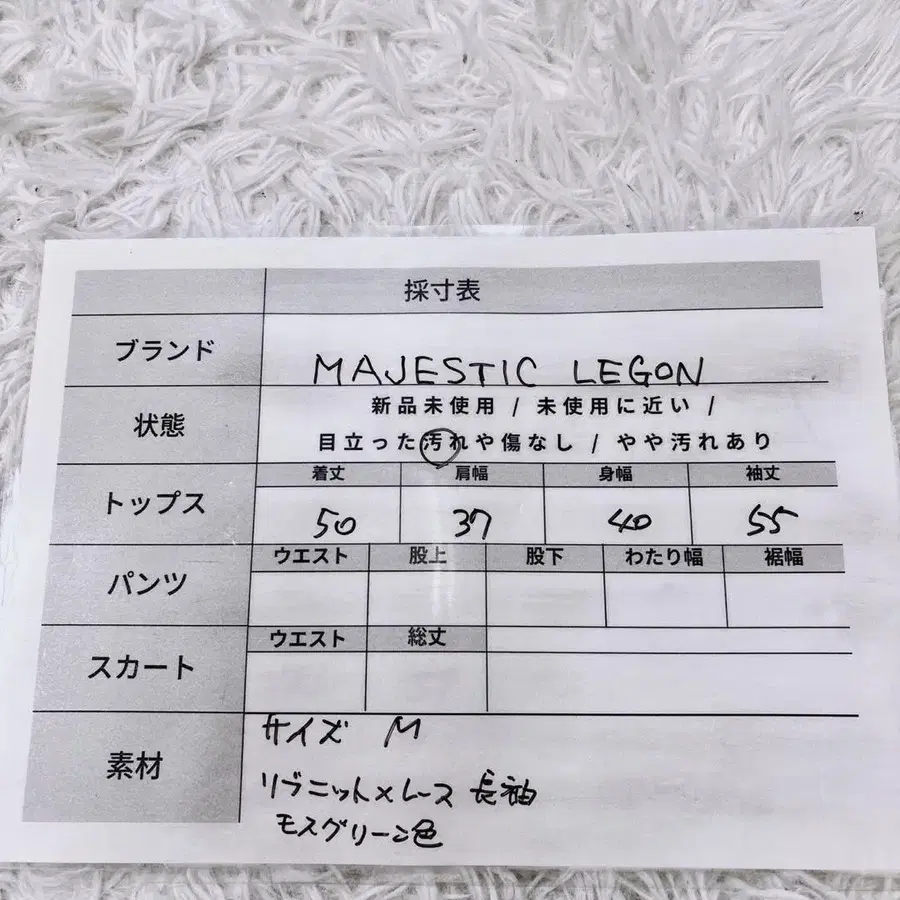 採寸表
ブランド
MAJESTIC LEGON
状態
新品未使用 / 未使用に近い /
目立った汚れや傷なし / やや汚れあり
トップス
着丈 肩幅 身幅 袖丈
50 37 40 55
パンツ
ウエスト 股上 股下 わたり幅 裾幅
スカート
ウエスト 総丈
素材
サイズ M
リブニット×レース 長袖
モスグリーン色